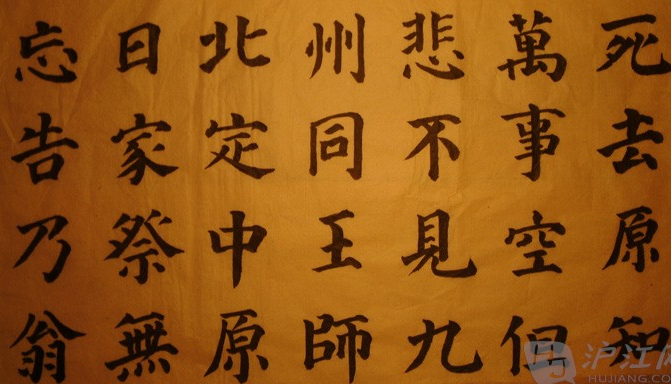 死去原知
萬事空但
悲不見九
州同王師
北定中原
日家祭無
忘告乃翁
沪江
HUJIANG.CO